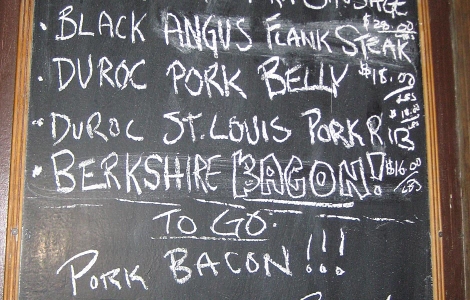 SAUSAGE
BLACK ANGUS FLANK STEAK
DUROC PORK BELLY $18.00/LBS
DUROC ST. LOUIS PORK
BERKSHIRE BACON! $16.00/LBS
TO GO
PORK BACON!!!